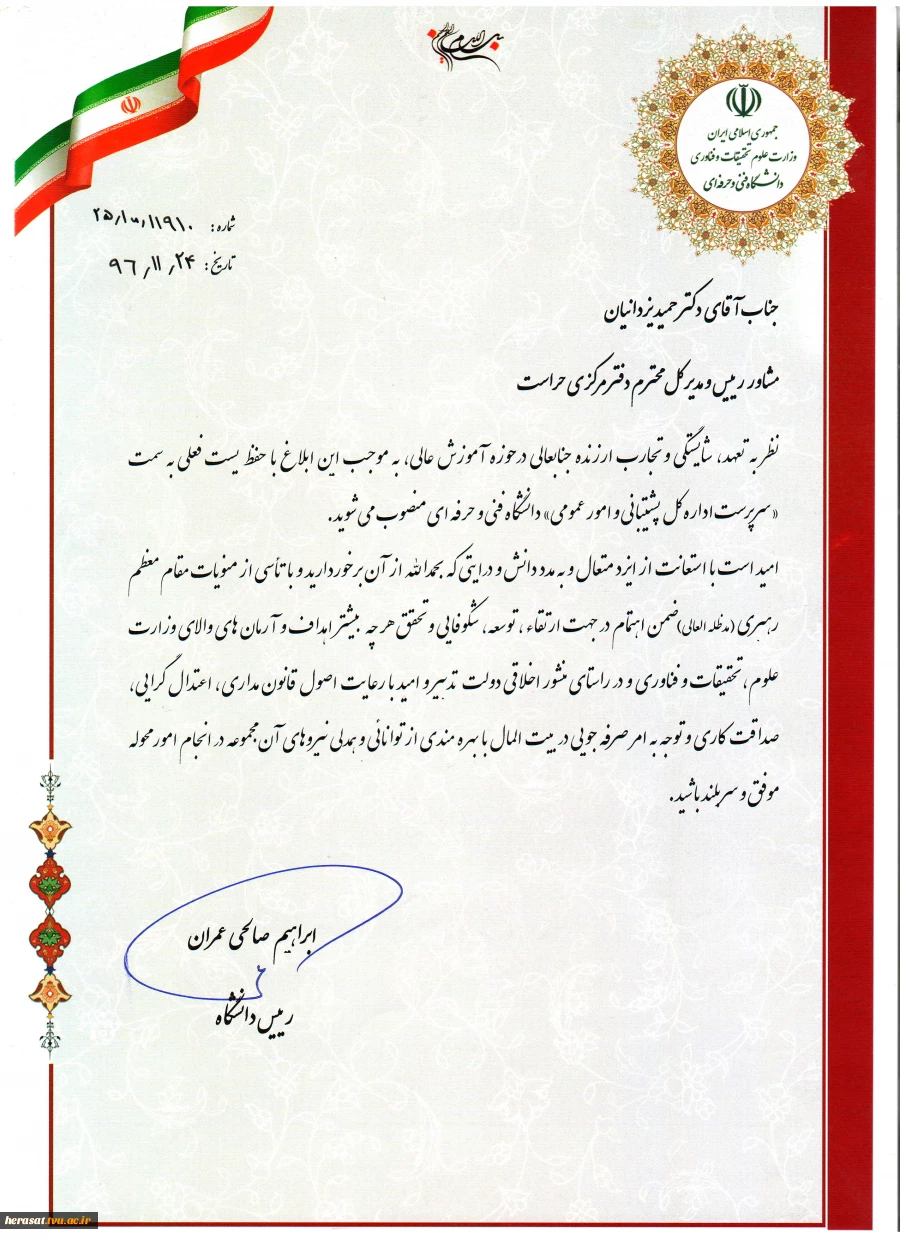 بسم الله الرحمن الرحیم
جمهوری اسلامی ایران
وزارت علوم تحقیقات و فناوری
دانشگاه فنی و حرفه ای
شماره: ۲۵/۱۰/۱۱۹۱۰
تاریخ: ۹۶/۱۱/۲۴
جناب آقای دکتر حمید یزدانیان
مشاور رییس و مدیر کل محترم دفتر مرکزی حراست
نظر به تعهد، شایستگی و تجارب ارزنده جنابعالی در حوزه آموزش عالی، به موجب این ابلاغ با حفظ پست فعلی به سمت
«سرپرست اداره کل پشتیبانی و امور عمومی» دانشگاه فنی و حرفه ای منصوب می شوید.
امید است با استعانت از ایزد متعال و به مدد دانش و درایتی که بحمدالله از آن برخوردارید و با تأسی از منویات مقام معظم
رهبری (مدظله العالی) ضمن اهتمام در جهت ارتقاء، توسعه، شکوفایی و تحقق هر چه بیشتر اهداف و آرمان های والای وزارت
علوم، تحقیقات و فناوری و در راستای منشور اخلاقی دولت تدبیر و امید با رعایت اصول قانون مداری، اعتدال گرایی،
صداقت کاری و توجه به امر صرفه جویی در بیت المال با بهره مندی از توانائی و همدلی نیروهای آن مجموعه در انجام امور محوله
موفق و سربلند باشید.
ابراهیم صالحی عمران
رییس دانشگاه
herasat.tvu.ac.ir